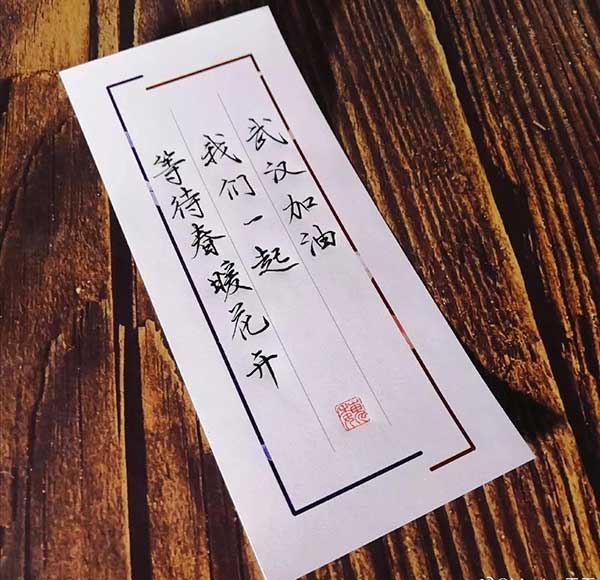 武汉加油
我们一起
等待春暖花开